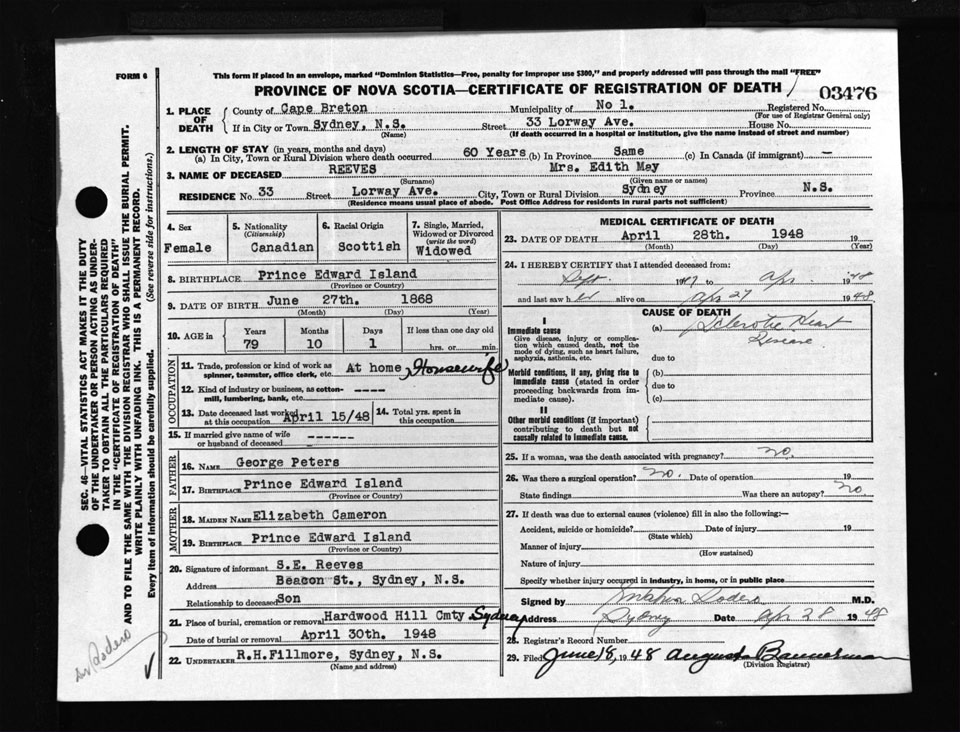 FORM 6
This form if placed in an envelope, marked "Dominion Statistics—Free, penalty for improper use $300," and properly addressed will pass through the mail "FREE"
PROVINCE OF NOVA SCOTIA—CERTIFICATE OF REGISTRATION OF DEATH
03476
1. PLACE OF DEATH
County of Cape Breton Municipality of No 1. Registered No.
(For use of Registrar General only)
If in City or Town Sydney, N.S. Street 33 Lorway Ave. House No.
(Name) (If death occurred in a hospital or institution, give the name instead of street and number)
2. LENGTH OF STAY (in years, months and days)
(a) In City, Town or Rural Division where death occurred 60 Years (b) In Province Same (c) In Canada (if immigrant) —
3. NAME OF DECEASED REEVES Mrs. Edith May
(Surname) (Given name or names)
RESIDENCE No. 33 Street Lorway Ave. City, Town or Rural Division Sydney Province N.S.
(Residence means usual place of abode. Post Office Address for residents in rural parts not sufficient)
4. Sex
Female
5. Nationality
(Citizenship)
Canadian
6. Racial Origin
Scottish
7. Single, Married, Widowed or Divorced
(write the word)
Widowed
8. BIRTHPLACE Prince Edward Island
(Province or Country)
9. DATE OF BIRTH June 27th. 1868
(Month) (Day) (Year)
10. AGE in
Years Months Days If less than one day old
79 10 1 hrs. or min.
OCCUPATION
11. Trade, profession or kind of work as spinner, teamster, office clerk, etc. At home, Housewife
12. Kind of industry or business, as cotton-mill, lumbering, bank, etc. ------
13. Date deceased last worked at this occupation April 15/48
14. Total yrs. spent in this occupation
15. If married give name of wife or husband of deceased ------
FATHER
16. NAME George Peters
17. BIRTHPLACE Prince Edward Island
(Province or Country)
MOTHER
18. MAIDEN NAME Elizabeth Cameron
19. BIRTHPLACE Prince Edward Island
(Province or Country)
20. Signature of informant S.E. Reeves
Address Beacon St., Sydney, N.S.
Relationship to deceased Son
21. Place of burial, cremation or removal Hardwood Hill Cmty Sydney
Date of burial or removal April 30th. 1948
22. UNDERTAKER R.H.Fillmore, Sydney, N.S.
(Name and address)
MEDICAL CERTIFICATE OF DEATH
23. DATE OF DEATH April 28th. 1948 19
(Month) (Day) (Year)
24. I HEREBY CERTIFY that I attended deceased from:
Sept. 1947 to Apr 1948
and last saw her alive on Apr 27 1948
CAUSE OF DEATH
I
Immediate cause
Give disease, injury or complication which caused death, not the mode of dying, such as heart failure, asphyxia, asthenia, etc.
(a) Sclerotic Heart
Disease
due to
Morbid conditions, if any, giving rise to immediate cause (stated in order proceeding backwards from immediate cause).
(b)
due to
(c)
II
Other morbid conditions (if important) contributing to death but not causally related to immediate cause.
25. If a woman, was the death associated with pregnancy? no.
26. Was there a surgical operation? no. Date of operation 19
State findings Was there an autopsy? no.
27. If death was due to external causes (violence) fill in also the following:—
Accident, suicide or homicide? Date of injury 19
(State which)
Manner of injury
(How sustained)
Nature of injury
Specify whether injury occurred in industry, in home, or in public place
Signed by M.D.
Address Sydney Date Apr 28 1948
28. Registrar's Record Number
29. Filed June 18, 1948 Augusta Bannerman
(Division Registrar)
SEC. 46—VITAL STATISTICS ACT MAKES IT THE DUTY
OF THE UNDERTAKER OR PERSON ACTING AS UNDER-
TAKER TO OBTAIN ALL THE PARTICULARS REQUIRED
IN THE "CERTIFICATE OF REGISTRATION OF DEATH"
AND TO FILE THE SAME WITH THE DIVISION REGISTRAR WHO SHALL ISSUE THE BURIAL PERMIT.
WRITE PLAINLY WITH UNFADING INK. THIS IS A PERMANENT RECORD.
Every item of information should be carefully supplied. (See reverse side for instructions.)